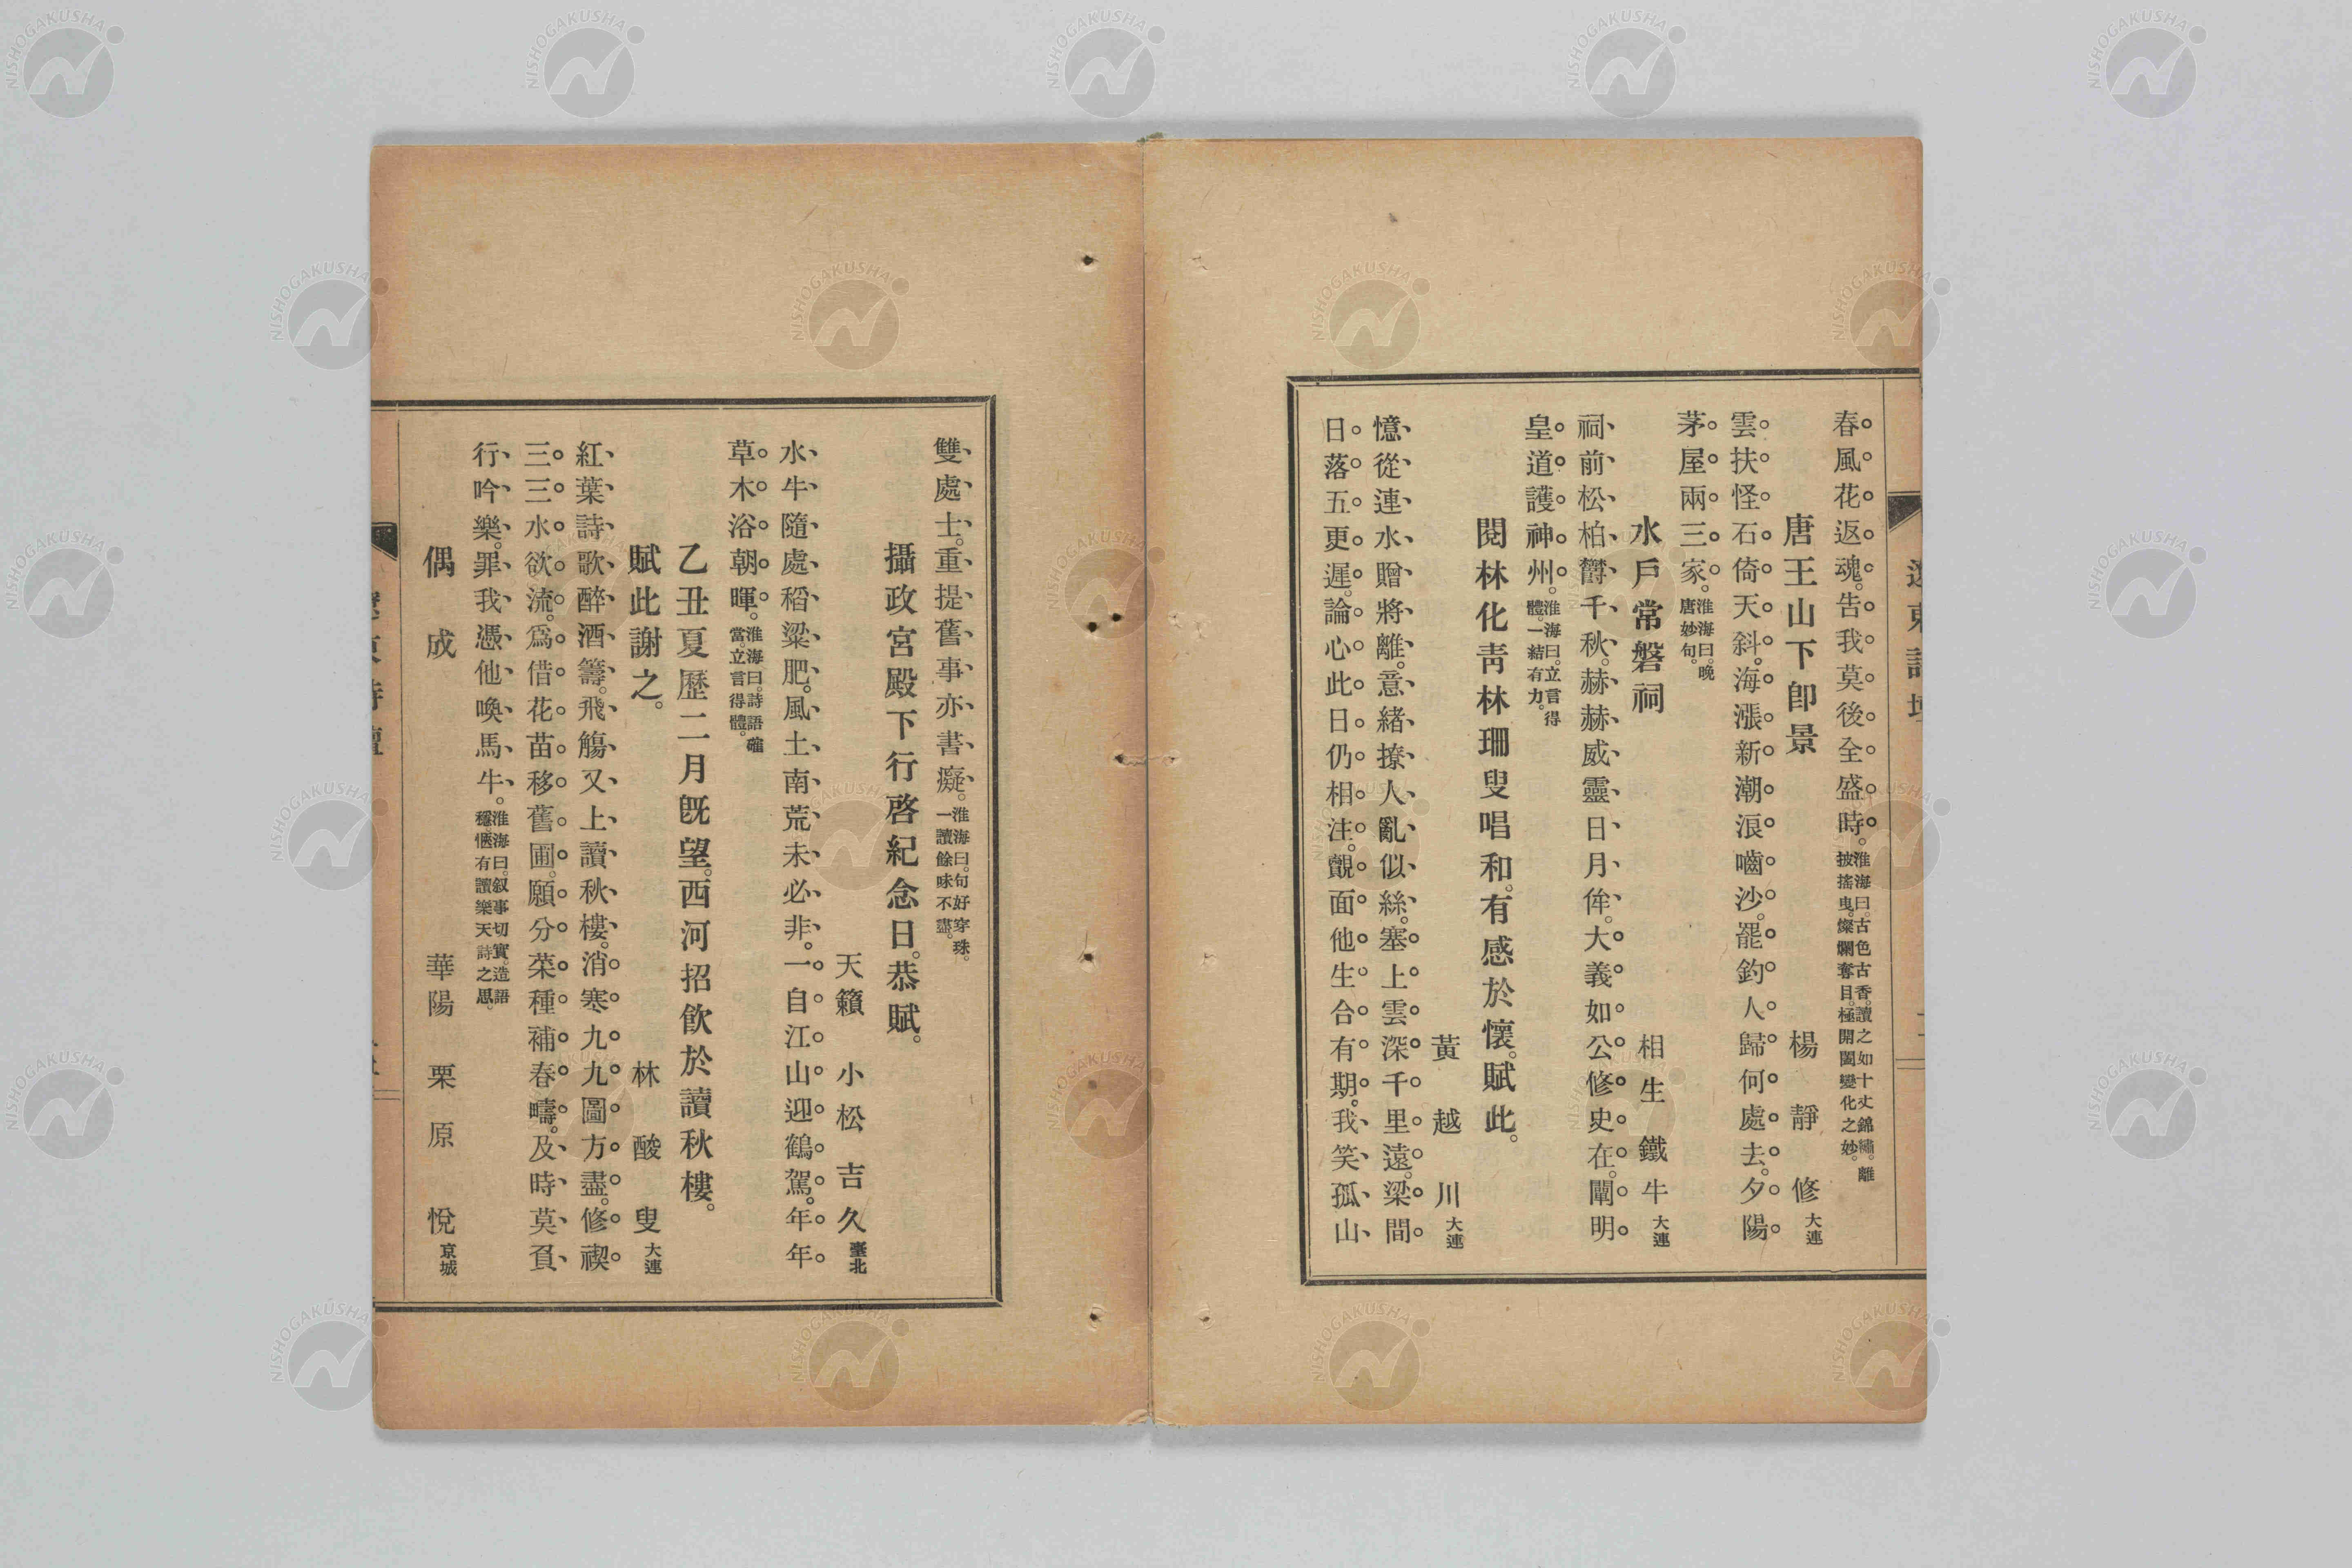 春風花返魂。告我莫後全盛時。淮海曰。古色古香。讀之如十丈錦繡。離披搖曳。燦爛奪目。極開闔變化之妙。
唐王山下卽景
楊靜修 大連
雲扶怪石倚天斜。海漲新潮浪嚙沙。罷釣人歸何處去。夕陽
茅屋兩三家。淮海曰。晚唐妙句。
水戶常磐祠
相生鐵牛 大連
祠前松柏欝千秋。赫赫威靈日月侔。大義如公修史在。闡明
皇道護神州。淮海曰。立言得體。一結有力。
閱林化靑林珊叟唱和。有感於懷。賦此。
黃越川 大連
憶從連水贈將離。意緒撩人亂似絲。塞上雲深千里遠。梁間
日落五更遲。論心此日仍相注。覿面他生合有期。我笑孤山
雙處士。重提舊事亦書癡。淮海曰。句好穿珠。一讀餘味不盡。
攝政宮殿下行啓紀念日。恭賦。
天籟 小松吉久 臺北
水牛隨處稻粱肥。風土南荒未必非。一自江山迎鶴駕。年年
草木浴朝暉。淮海曰。詩語確當。立言得體。
乙丑夏歷二月旣望。西河招飮於讀秋樓。
賦此謝之。
林酸叟 大連
紅葉詩歌醉酒籌。飛觴又上讀秋樓。消寒九九圖方盡。修禊
三三水欲流。爲借花苗移舊圃。願分菜種補春疇。及時莫負
行吟樂。罪我憑他喚馬牛。淮海曰。叙事切實。造語穩愜。有讀樂天詩之思。
偶成
華陽 栗原悅 京城
NISHOGAKUSHA